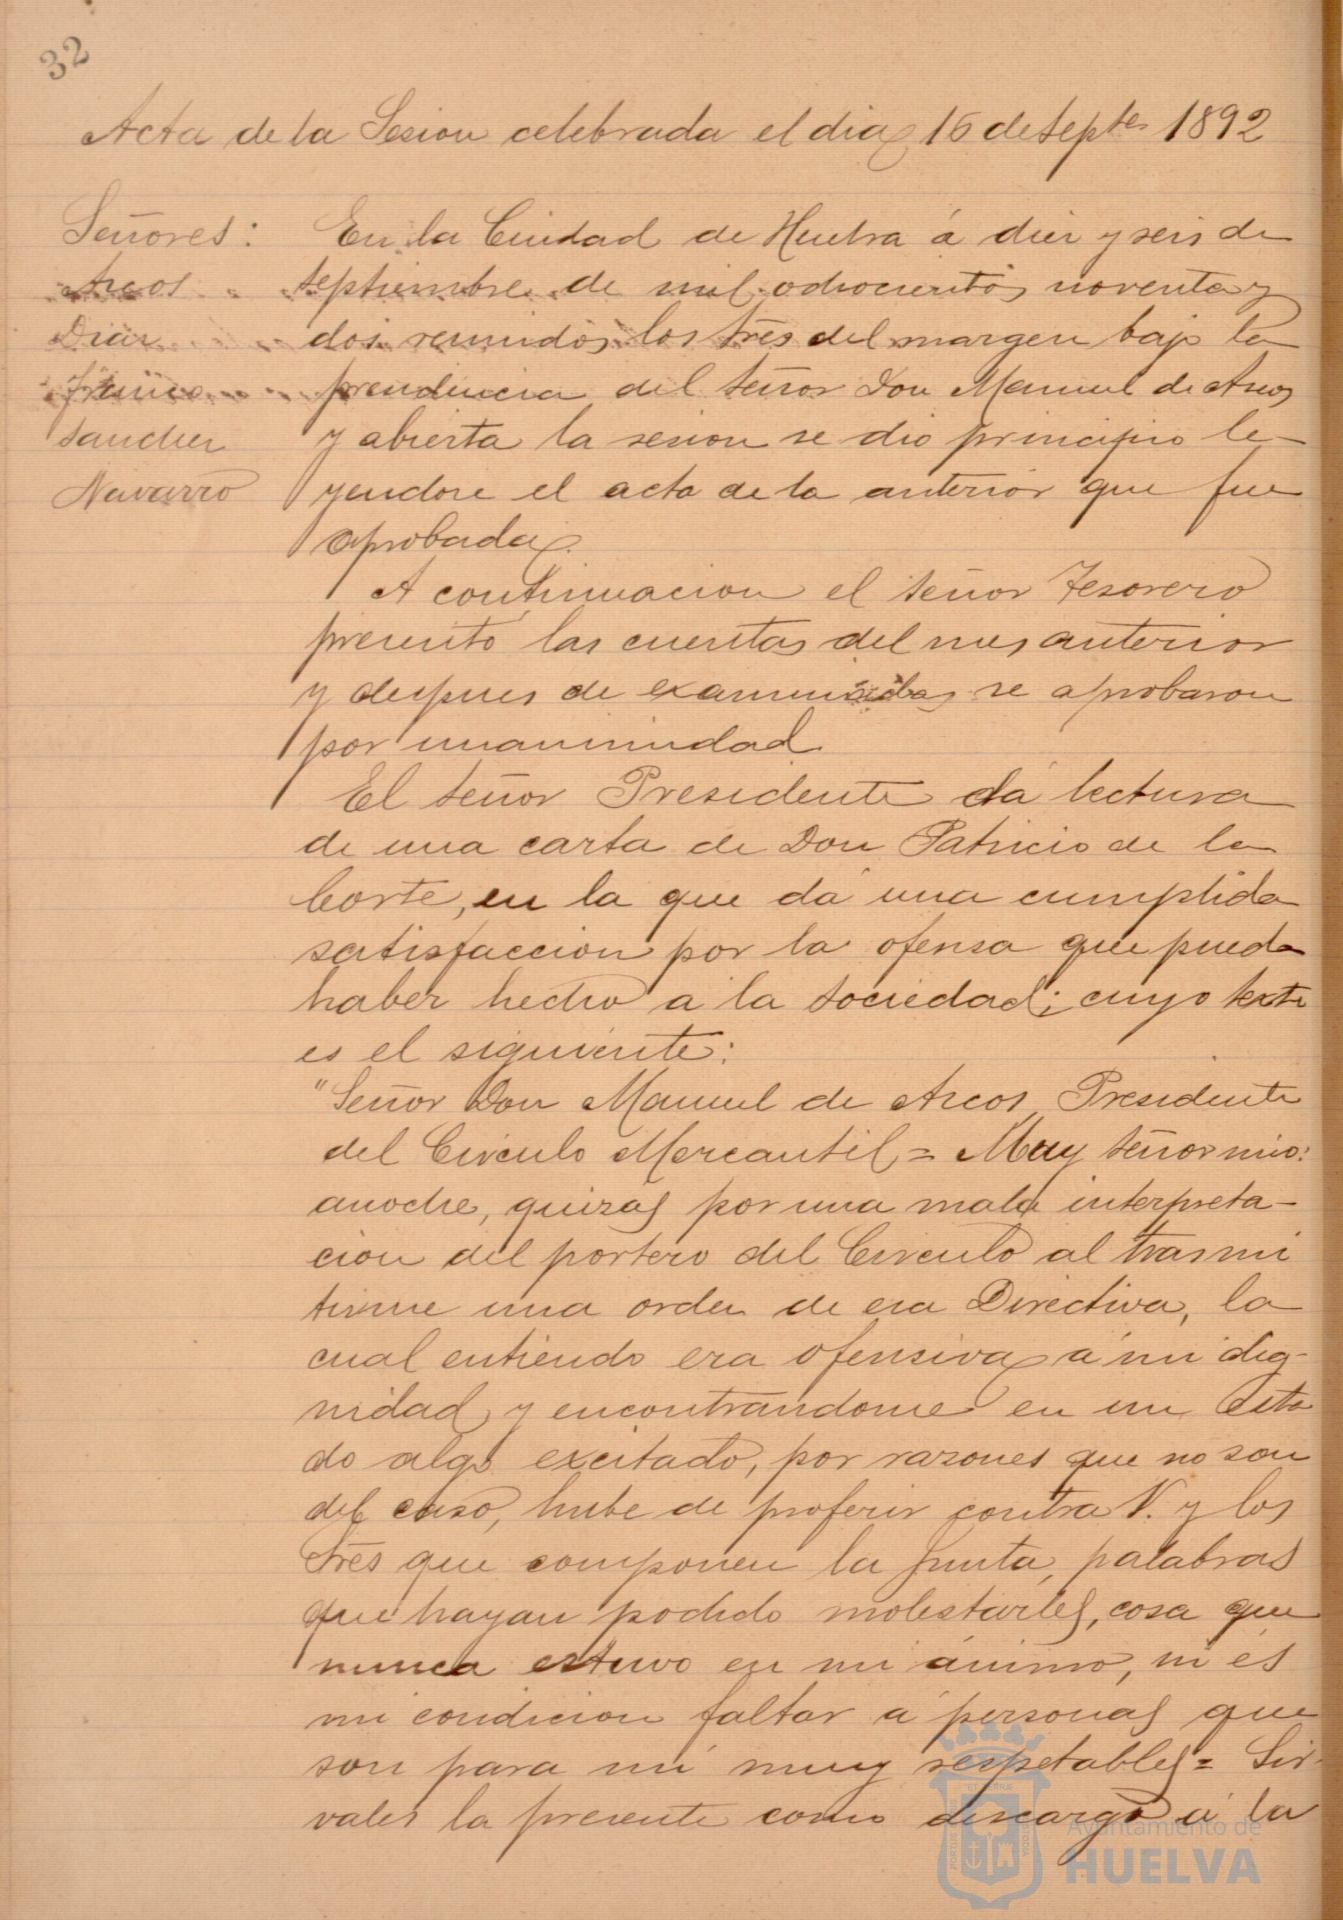 32
Acta de la Sesion celebrada el dia 16 de Septe 1892
Señores:
Arcos
Diaz
Sanchez
Navarro
En la Ciudad de Huelva á diez y seis de
Septiembre de mil ochocientos noventa y
dos reunidos los Sres del margen bajo la
presidencia del Señor Don Manuel de Arcos
y abierta la sesion se dio principio le-
yendose el acta de la anterior que fue
aprobada.
A continuacion el Señor Tesorero
presentó las cuentas del mes anterior
y despues de examinadas se aprobaron
por unanimidad.
El Señor Presidente dá lectura
de una carta de Don Patricio de la
Corte, en la que dá una cumplida
satisfaccion por la ofensa que pueda
haber hecho a la Sociedad; cuyo texto
es el siguiente:
"Señor Don Manuel de Arcos Presidente
del Circulo Mercantil = Muy Señor mio:
anoche, quizas por una mala interpreta-
cion del portero del Circulo al trasmi
tirme una orden de esa Directiva, la
cual entiendo era ofensiva á mi dig-
nidad y encontrándome en un esta
do algo excitado, por razones que no son
del caso, hube de proferir contra V. y los
Sres que componen la Junta, palabras
que hayan podido molestarles, cosa que
nunca estuvo en mi ánimo, ni és
mi condicion faltar á personas que
son para mí muy respetables = Sir-
vales la presente como descargo á la
Ayuntamiento de
HUELVA